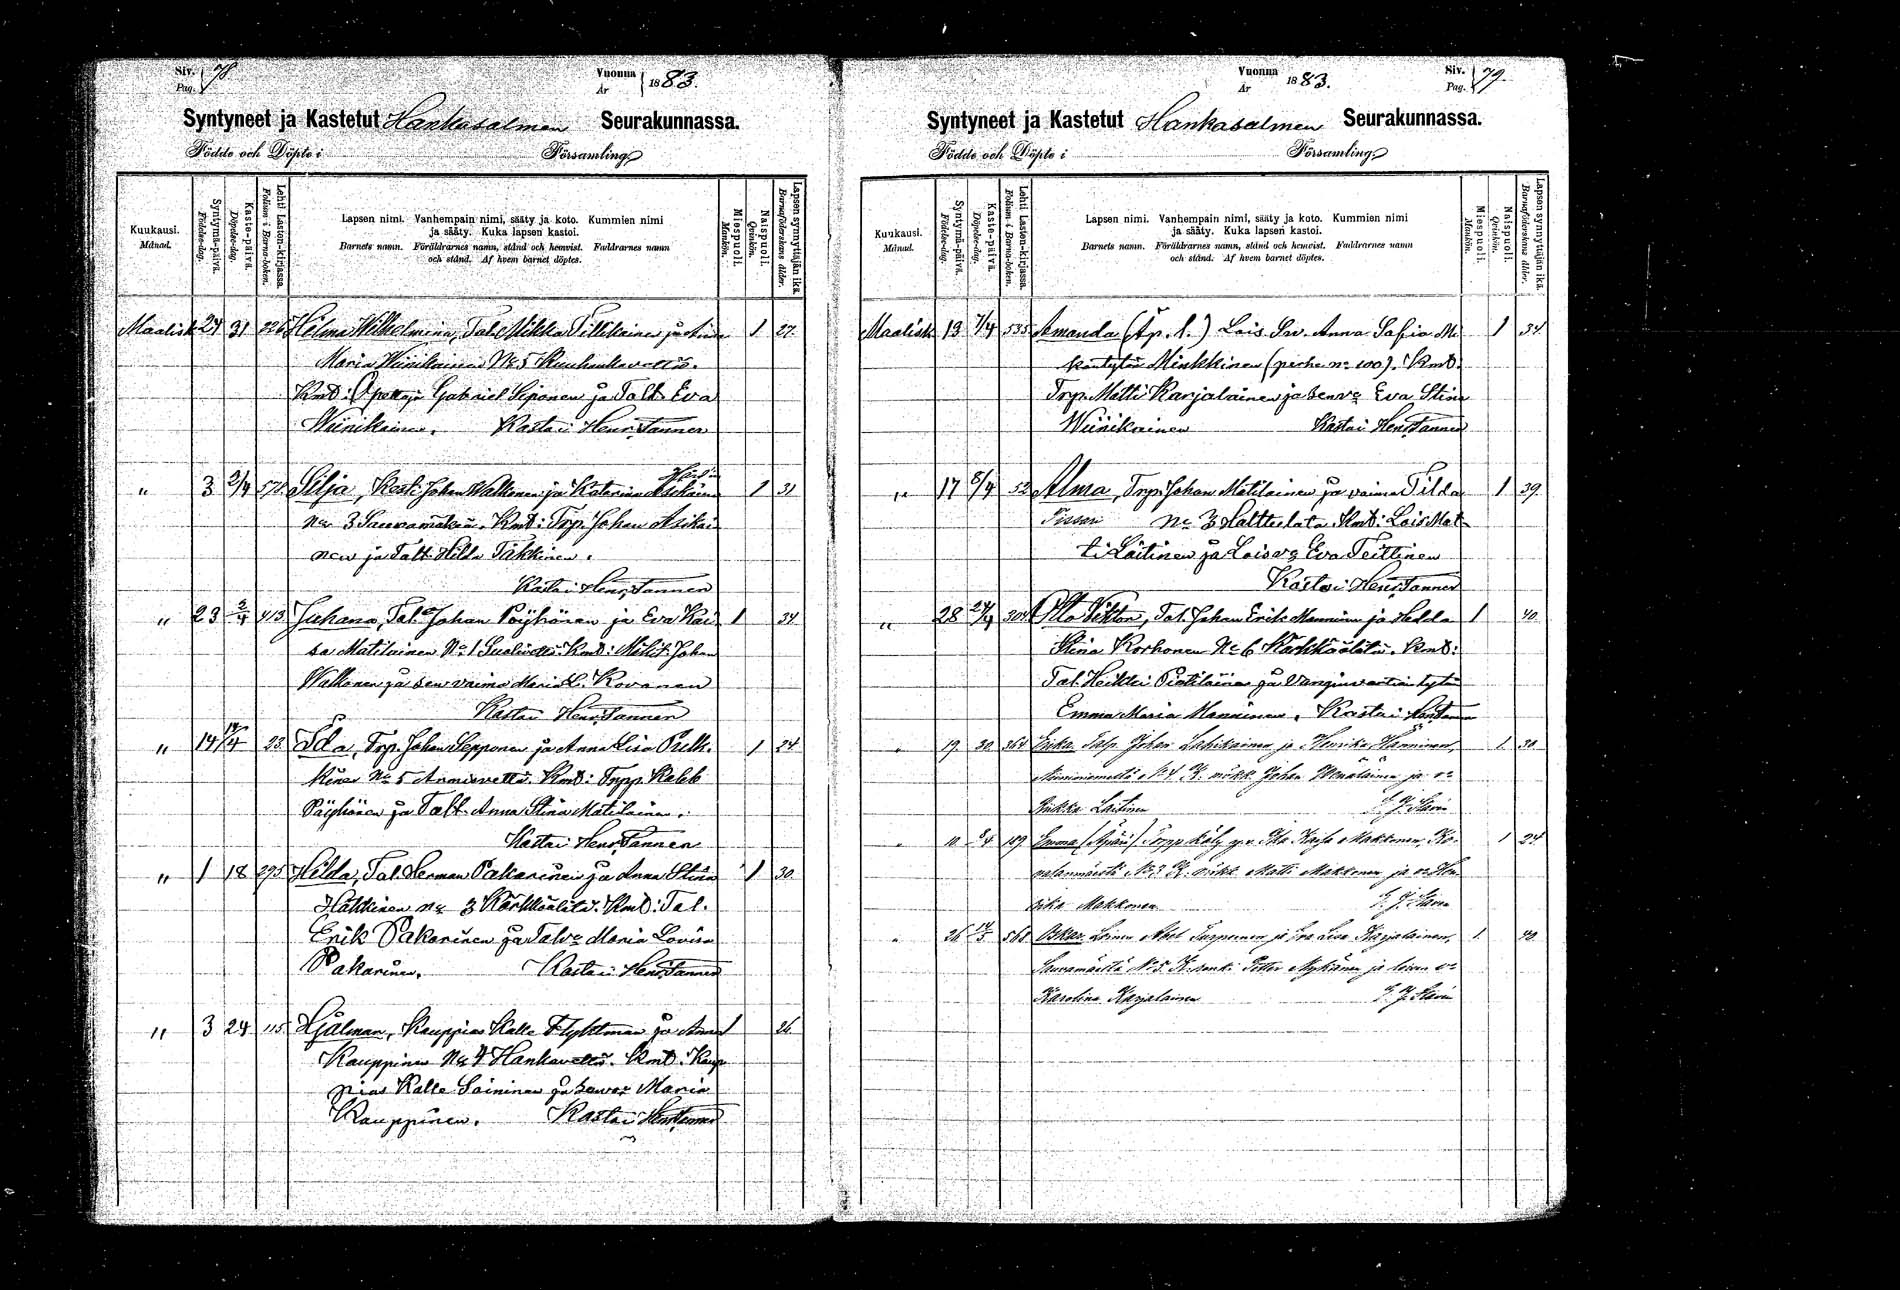 Siv. 78
Pag.
Vuonna 1883.
År
Syntyneet ja Kastetut Hankasalmen Seurakunnassa.
Födde och Döpte i Församling
Kuukausi.
Månad.
Syntymä-päivä.
Födelse-dag.
Kaste-päivä.
Döpelse-dag.
Lehti Lasten-kirjassa.
Folium i Barna-boken.
Lapsen nimi. Vanhempain nimi, sääty ja koto. Kummien nimi
ja sääty. Kuka lapsen kastoi.
Barnets namn. Föräldrarnes namn, stånd och hemvist. Faddrarnes namn
och stånd. Af hvem barnet döptes.
Miespuoli.
Mankön.
Naispuoli.
Qvinkön.
Lapsen synnyttäjän ikä.
Barnaföderskans ålder.
Maalisk 24 31 226 Helma Wilhelmina, Tal. Mikko Tillikainen ja Anna 1 27.
Maria Wiinikainen No 5 Kuuhankavettä.
Kmt: Opettaja Gabriel Siponen ja Talt. Eva
Wiinikainen. Kastoi Henr. Tanner
" 3 2/4 578. Silja, Kesti Johan Walkonen ja Katarina Asikainen 1 31
No 3 Sauvamäkeä. Kmt: Trp. Johan Asikai-
nen ja Talt. Hilda Häkkinen.
Kastoi Henr. Tanner
" 23 2/4 413 Juhana, Tal. Johan Pöyhönen ja Eva Kai 1 34
sa Matilainen No 1 Suolivettä. Kmt: Mökit. Johan
Walkonen ja sen vaimo Maria L. Kovanen
Kastoi Henr. Tanner
" 14 14/4 23. Ida, Trp. Johan Sepponen ja Anna Lisa Pulk- 1 24
kinen No 5 Armisvettä. Kmt: Trpp. Kaleb
Pöyhönen ja Talt. Anna Stina Matilainen.
Kastoi Henr. Tanner
" 1 18 295 Hilda, Tal. Herman Pakarinen ja Anna Stina 1 30
Häkkinen No 3 Kärkkäälää. Kmt: Tal.
Erik Pakarinen ja Tal. vo Maria Lovisa
Pakarinen. Kastoi Henr. Tanner
" 3 24 115. Hjalmar, Kauppias Kalle Flyktman ja Anna 1 26
Kauppinen No 4 Hankavettä. Kmt: Kaup-
pias Kalle Soininen ja sen vo Maria
Kauppinen. Kastoi Henr. Tanner
Vuonna 1883.
År
Siv. 79.
Pag.
Syntyneet ja Kastetut Hankasalmen Seurakunnassa.
Födde och Döpte i Församling
Kuukausi.
Månad.
Syntymä-päivä.
Födelse-dag.
Kaste-päivä.
Döpelse-dag.
Lehti Lasten-kirjassa.
Folium i Barna-boken.
Lapsen nimi. Vanhempain nimi, sääty ja koto. Kummien nimi
ja sääty. Kuka lapsen kastoi.
Barnets namn. Föräldrarnes namn, stånd och hemvist. Faddrarnes namn
och stånd. Af hvem barnet döptes.
Miespuoli.
Mankön.
Naispuoli.
Qvinkön.
Lapsen synnyttäjän ikä.
Barnaföderskans ålder.
Maalisk 13 7/4 535 Amanda (Äp. l.) Lois. Anna Sofia Mi 1 34
käntytär Minkkinen (perhe no 100). Kmt:
Trp. Matti Karjalainen ja sen vo Eva Stina
Wiinikainen Kastoi Henr. Tanner
" 17 8/4 52 Alma, Trp. Johan Matilainen ja vaimo Tilda 1 39.
Tissari No 3 Halttulata. Kmt: Lois. Mat-
ti Laitinen ja Lois. vo Eva Teittinen
Kastoi Henr. Tanner
" 28 24/4 304 Otto Viktor, Tal. Johan Erik Manninen ja Hedda 1 40
Stina Korhonen No 6 Kärkkäälää. Kmt:
Tal. Heikki Pietiläinen ja Vanginvartian tytär
Emma Maria Manninen. Kastoi Henr. Tanner
" 19. 30. 364 Erika Johan Lahikainen ja Henrika Hänninen, 1. 30
Niemisjärveltä No 4. K. mökk. Johan Wenäläinen ja vo
Laitinen
" 10 8/4 189 Emma (Äpärä) Karl Makkonen, 1 24
No 3 K. mökk. Matti Makkonen ja vo Hen-
rika Makkonen
" 26 568 Oskar, Loinen Abel Turpeinen ja Eva Lisa Karjalainen, 1. 40
Sauvamäestä No 5. K. Petter Nykänen ja loisen vo
Karolina Karjalainen